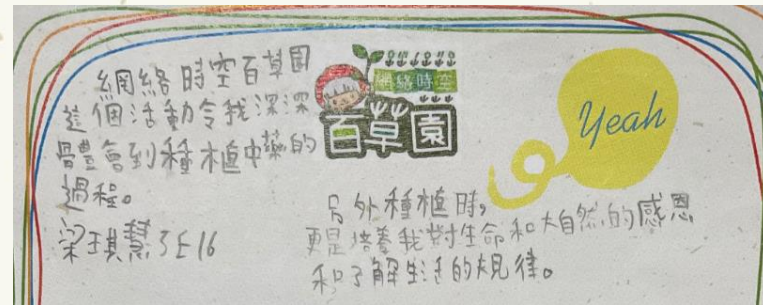 網絡時空百草園
這個活動令我深深
體會到種植中藥的
過程。
梁琪慧 3E16
網絡時空
百草園
Yeah
另外種植時，
更是培養我對生命和大自然的感恩
和了解生活的規律。